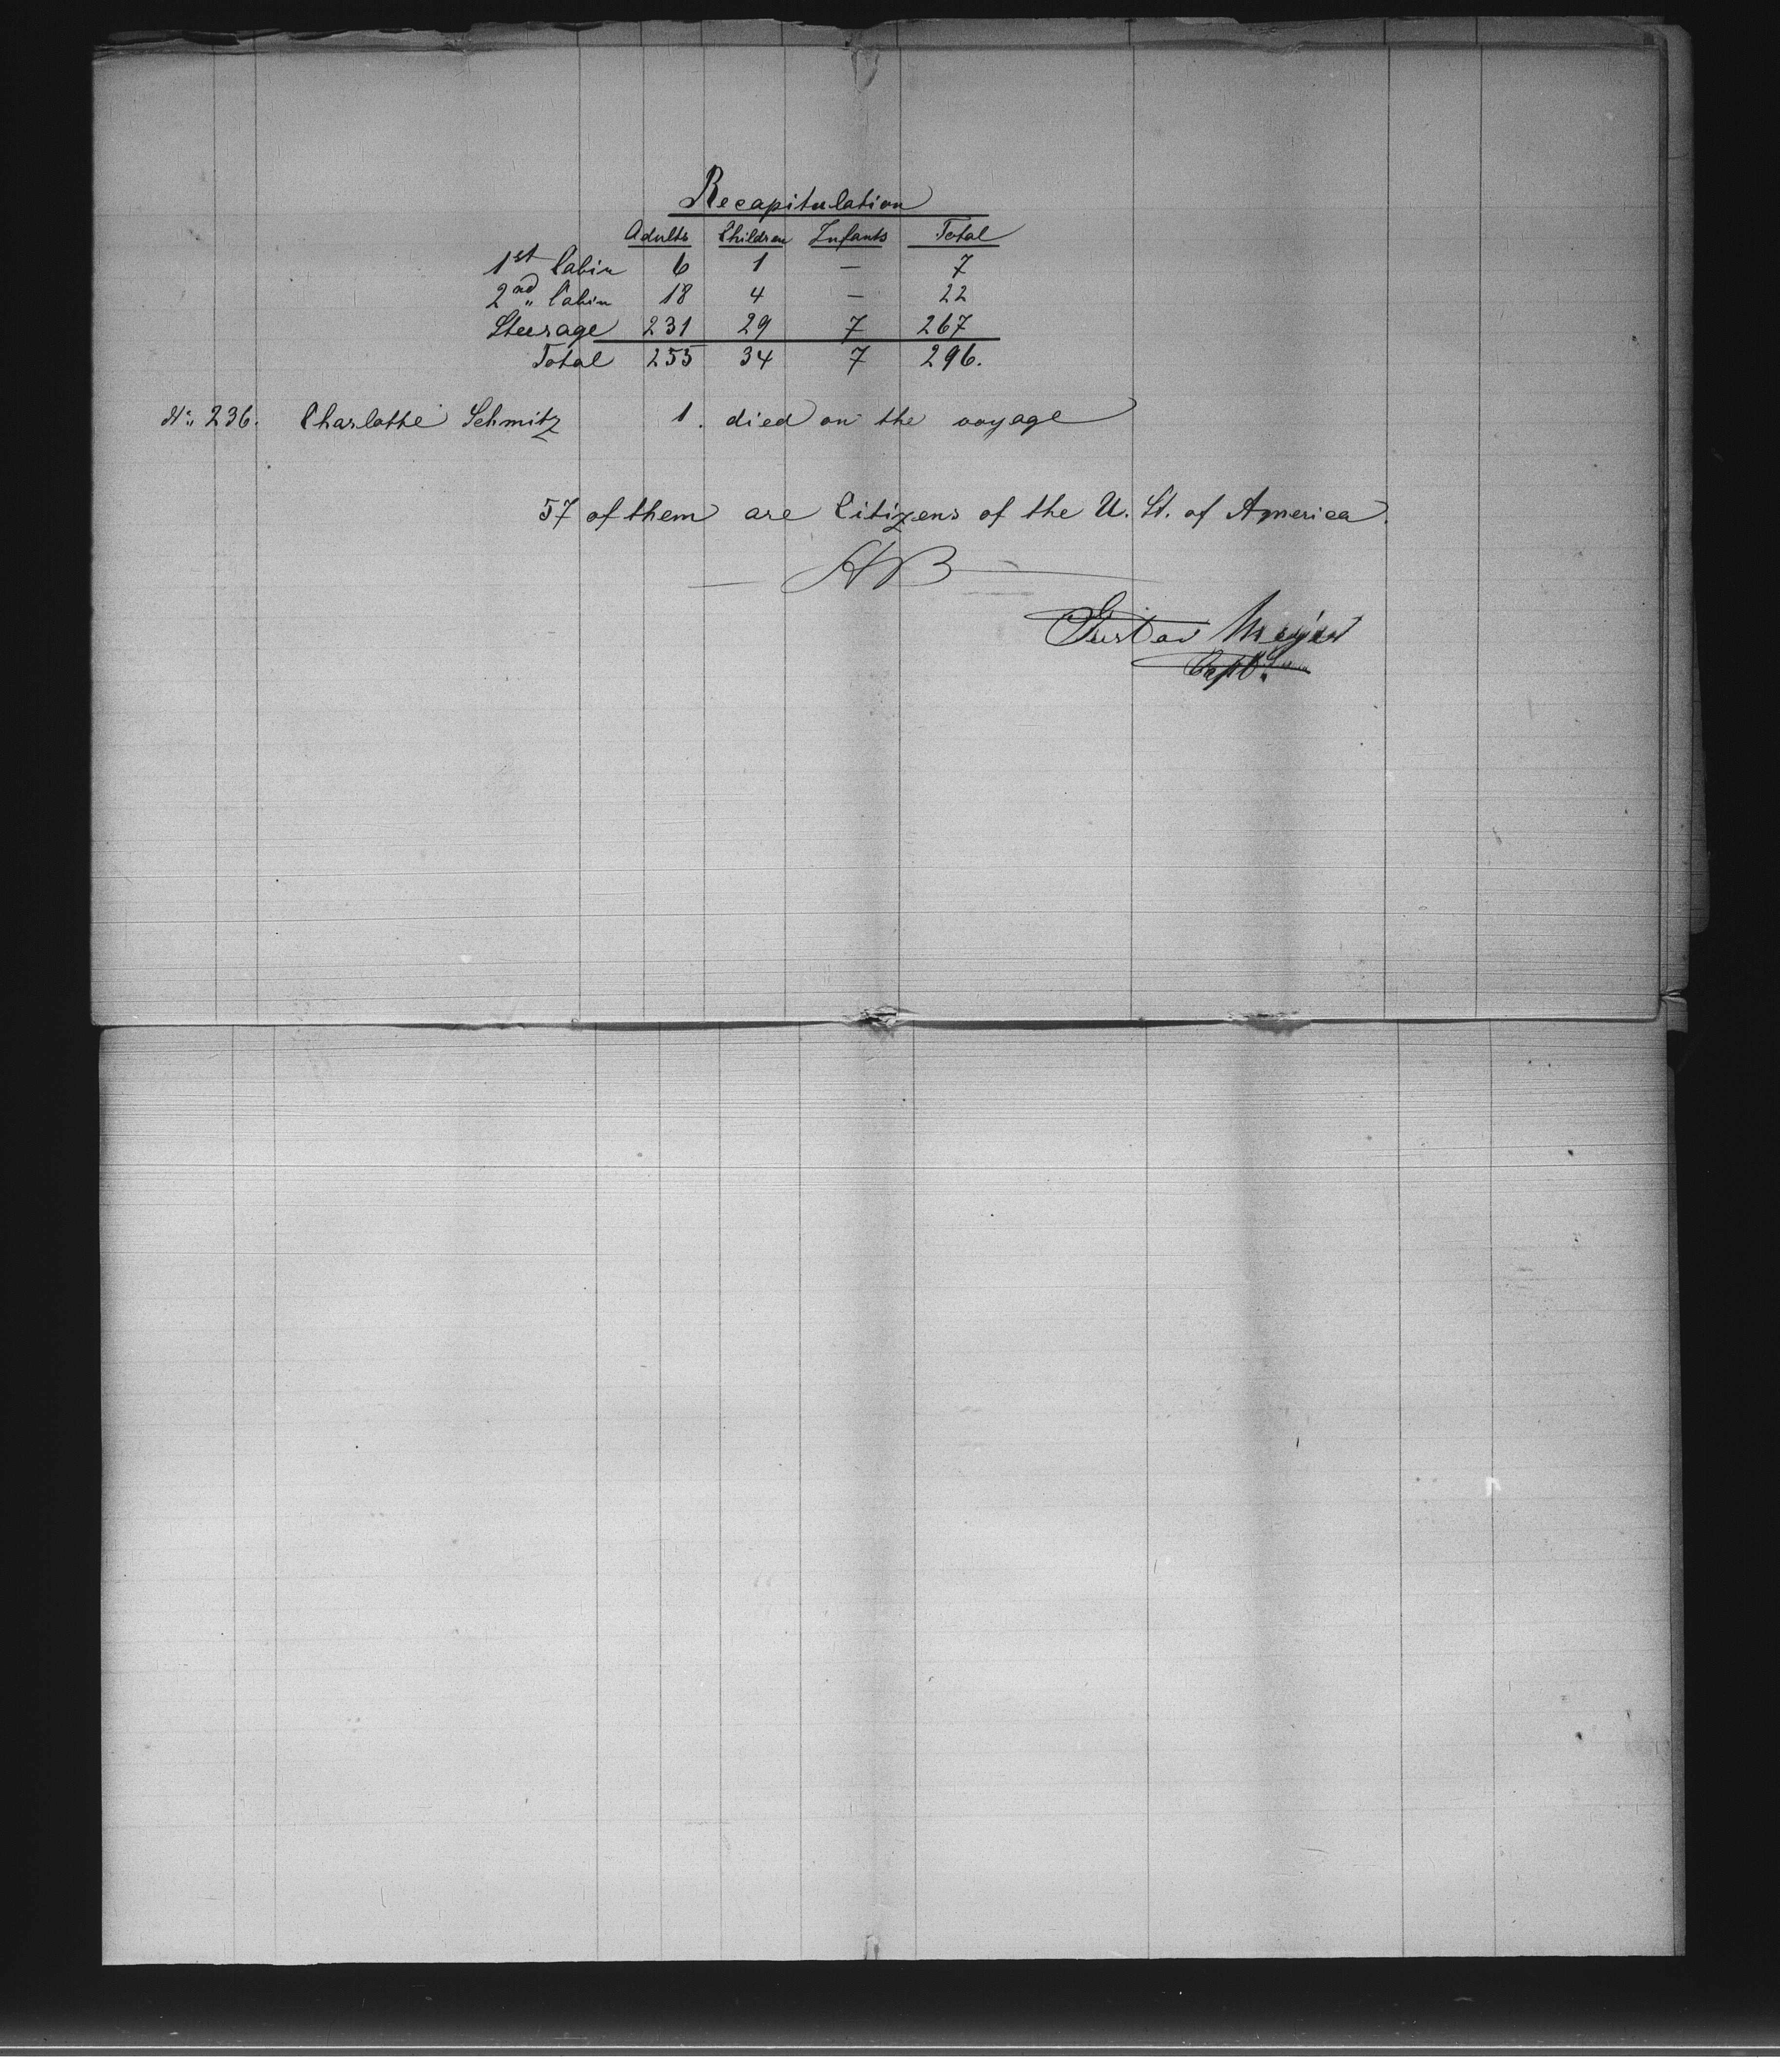 Recapitulation
Adults Children Infants Total
1st Cabin 6 1 — 7
2nd „ Cabin 18 4 — 22
Steerage 231 29 7 267
Total 255 34 7 296.
No. 236. Charlotte Schmitz 1. died on the voyage
57 of them are Citizens of the U. St. of America.
Gustav Meyer
Capt.